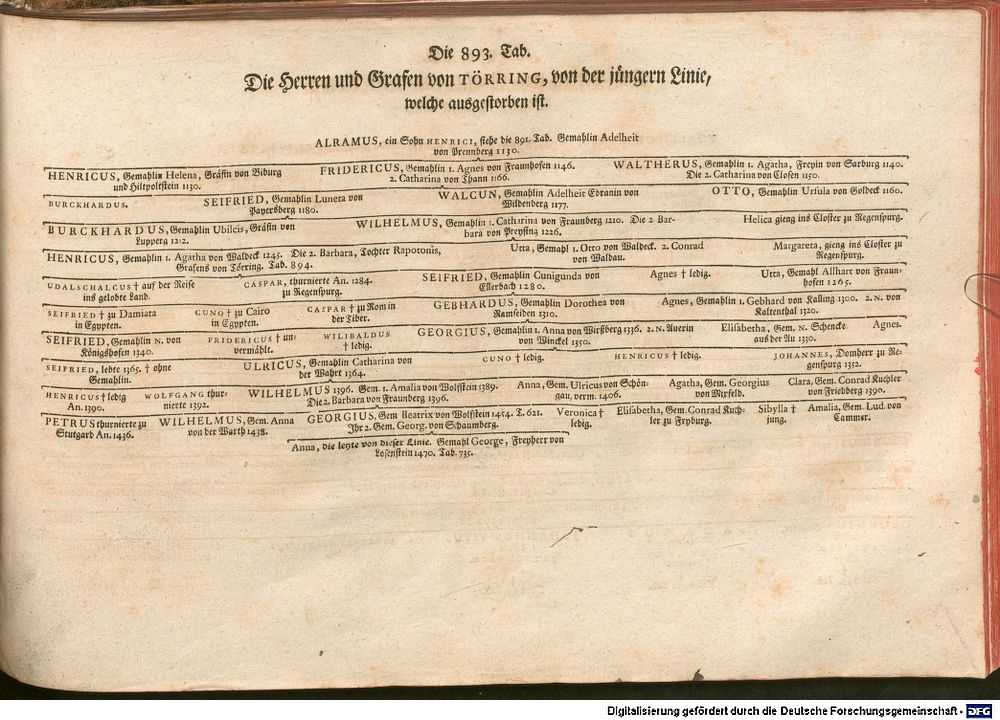 Die 893. Tab.
Die Herren und Grafen von TÖRRING, von der jüngern Linie,
welche ausgestorben ist.
ALRAMUS, ein Sohn HENRICI, siehe die 891. Tab. Gemahlin Adelheit
von Prennberg 1130.
HENRICUS, Gemahlin Helena, Gräfin von Biburg
und Hiltpoltstein 1130.
FRIDERICUS, Gemahlin 1. Agnes von Fraunhofen 1146.
2. Catharina von Thann 1166.
WALTHERUS, Gemahlin 1. Agatha, Freyin von Sarburg 1140.
Die 2. Catharina von Closen 1150.
BURCKHARDUS.
SEIFRIED, Gemahlin Luneta von
Payersberg 1180.
WALCUN, Gemahlin Adelheit Ebranin von
Wildenberg 1177.
OTTO, Gemahlin Ursula von Goldeck 1160.
BURCKHARDUS, Gemahlin Ubilcis, Gräfin von
Lupperg 1212.
WILHELMUS, Gemahlin 1. Catharina von Fraunberg 1210. Die 2 Bar-
bara von Preysing 1226.
Helica gieng ins Closter zu Regenspurg.
HENRICUS, Gemahlin 1. Agatha von Waldeck 1245. Die 2. Barbara, Tochter Rapotonis,
Grafens von Törring. Tab. 894.
Utta, Gemahl 1. Otto von Waldeck. 2. Conrad
von Waldau.
Margareta, gieng ins Closter zu
Regenspurg.
UDALSCHALCUS † auf der Reise
ins gelobte Land.
CASPAR, thurnierte An. 1284.
zu Regenspurg.
SEIFRIED, Gemahlin Cunigunda von
Ellerbach 1280.
Agnes † ledig.
Utta, Gemahl Allhart von Fraun-
hofen 1265.
SEIFRIED † zu Damiata
in Egypten.
CUNO † zu Cairo
in Egypten.
CASPAR † zu Rom in
der Tiber.
GEBHARDUS, Gemahlin Dorothea von
Ramseiden 1310.
Agnes, Gemahlin 1. Gebhard von Kalling 1300. 2. N. von
Kaltenthal 1320.
SEIFRIED, Gemahlin N. von
Königshofen 1340.
FRIDERICUS † un-
vermählt.
WILIBALDUS
† ledig.
GEORGIUS, Gemahlin 1. Anna von Wirßberg 1336. 2. N. Auerin
von Winckel 1350.
Elisabetha, Gem. N. Schencke
aus der Au 1330.
Agnes.
SEIFRIED, lebte 1365. † ohne
Gemahlin.
ULRICUS, Gemahlin Catharina von
der Wahrt 1364.
CUNO † ledig.
HENRICUS † ledig.
JOHANNES, Domherr zu Re-
genspurg 1352.
HENRICUS † ledig
An. 1390.
WOLFGANG thur-
nierte 1392.
WILHELMUS 1396. Gem. 1. Amalia von Wolfstein 1389.
Die 2. Barbara von Fraunberg 1396.
Anna, Gem. Ulricus von Schön-
gau, verm. 1406.
Agatha, Gem. Georgius
von Mirfeld.
Clara, Gem. Conrad Kuchler
von Friedberg 1390.
PETRUS thurnierte zu
Stutgard An. 1436.
WILHELMUS, Gem. Anna
von der Warth 1438.
GEORGIUS. Gem Beatrix von Wolfstein 1454. T. 621.
Ihr 2. Gem. Georg. von Schaumberg.
Veronica †
ledig.
Elisabetha, Gem. Conrad Kuch-
ler zu Fryburg.
Sibylla †
jung.
Amalia, Gem. Lud. von
Cammer.
Anna, die letzte von dieser Linie. Gemahl George, Freyherr von
Losenstein 1470. Tab. 735.
Digitalisierung gefördert durch die Deutsche Forschungsgemeinschaft - DFG